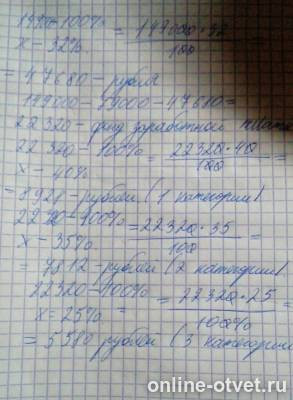 1490-100% = 149000·32 / 100 =
x - 32%.
= 47680 - рубля
149000-79000-47680=
22320 - фонд заработной платы
22320 - 100% = 22320·40 / 100 =
x - 40%
= 8928 - рублей (1 категории)
2220-100% = 22320·35 / 100 =
x - 35%
= 7812 - рублей (2 категории)
22320-100% = 22320·25 / 100% =
x = 25%
= 5580 рублей (3 категории
online-otvet.ru